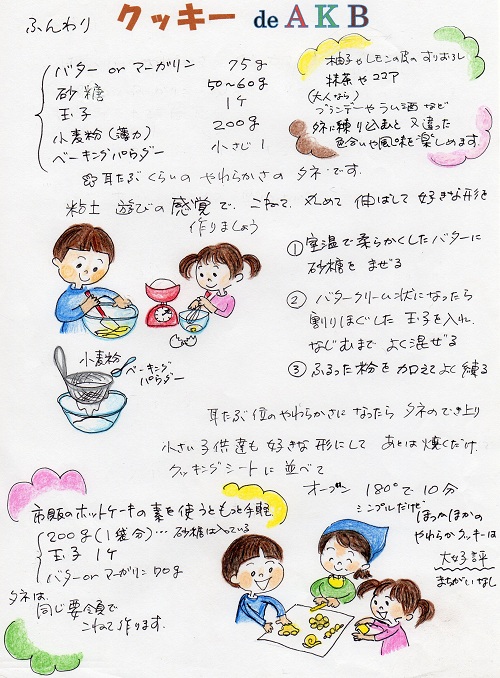 ふんわり クッキー de AKB
バター or マーガリン 75g
砂糖 50〜60g
玉子 1ケ
小麦粉(薄力) 200g
ベーキングパウダー 小さじ1
柚子やレモンの皮のすりおろし
抹茶やココア
(大人なら)
ブランデーやラム酒など
タネに練り込むと又違った
色合いや風味を楽しめます
耳たぶくらいの やわらかさの タネです.
粘土遊びの感覚で、こねて、丸めて 伸ばして 好きな形を
作りましょう
① 室温で柔らかくしたバターに
砂糖を まぜる
② バタークリーム状になったら
割りほぐした 玉子を入れ
なじむまで よく混ぜる
③ ふるった粉を加えてよく練る
小麦粉
ベーキング
パウダー
耳たぶ位のやわらかさになったら タネのでき上り
小さい子供達も 好きな形にして あとは焼くだけ.
クッキングシートに並べて
オーブン 180°で10分
シンプルだけど
ほっかほかの
やわらかクッキーは
大好評
まちがいなし
市販のホットケーキの素を使うともっと手軽
200g(1袋分)…砂糖は入っている
玉子 1ケ
バターorマーガリン 70g
タネは
同じ要領で
こねて作ります.